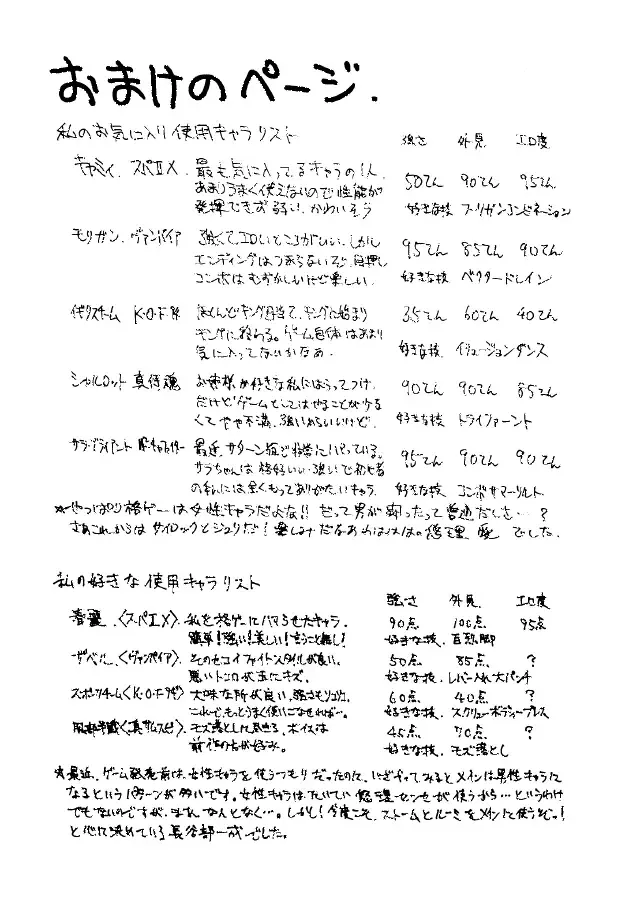 おまけのページ.
私のお気に入り使用キャラリスト 強さ 外見 エロ度
キャミィ. スパⅡX. 最も気に入ってるキャラの1人.
あまりうまく使えないので性能が
発揮できず弱い.かわいそう
50てん 90てん 95てん
好きな技 フーリガンコンビネーション
モリガン.ヴァンパイア 強くてエロいところがいい.しかし
エンディングはつまらないぞ.目押し
コンボはむずかしいけど楽しい.
95てん 85てん 90てん
好きな技 ベクタードレイン
イギリスチーム K・O・F ほとんどキング目当て.キングに始まり
キングに終わる。ゲーム自体はあまり
気に入ってないかなあ.
35てん 60てん 40てん
好きな技. イリュージョンダンス
シャルロット 真侍魂 お客様が好きな私にはうってつけ.
だけどゲームとしてはやることが少な
くてやや不満.強いからいいけど.
90てん 90てん 85てん
好きな技 トライファーント
サラ・ブライアント 最近.サターン版で非常にハマっている。
サラちゃんは格好いい・強いで初心者
の私には全くもってありがたいキャラ.
95てん 90てん 90てん
好きな技 コンボサマーソルト
☆やっぱり格ゲーは女性キャラだよな!! だって男が闘ったって普通だしさ…?
さあこれからはサイロックとジュリだ! 楽しみだなあわはははの悠理 愛 でした.
私の好きな使用キャラリスト 強さ 外見 エロ度
春麗.<スパⅡX> 私を格ゲーにハマらせたキャラ.
簡単!強い!美しい!言うこと無し!
90点 100点 95点
好きな技.百烈脚
ザベル.<ヴァンパイア>. そのセコイファイトスタイルが良い.
悪いトコロが玉にキズ.
50点 85点. ?
好きな技.レバー入れ大パンチ
スポーツチーム<K・O・F> 大味な所が良い.強さもソコソコ.
これで、もっとうまく使いこなせれば….
60点 40点 ?
好きな技. スクリューボディープレス
風間 モズ落としで決まる.ボイスは
前作の方が好み.
45点. 70点. ?
好きな技 モズ落とし
☆最近、ゲーム発売前は女性キャラを使うつもりだったのに、いざやってみるとメインは男性キャラに
なるというパターンが多いです。女性キャラはたいてい悠理センセが使うから…というわけ
でもないのですが、まぁ、なんとなく…。しかし!今度こそ、ストームとルーミをメインで使うぞっ!
と心に決めている長谷部一成でした。